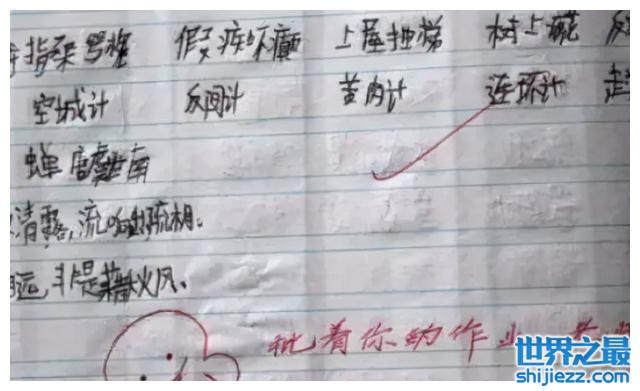 指桑骂槐 假痴不癫 上屋抽梯 树上 反
空城计 反间计 苦肉计 连环计 走
蝉
清露,流响出疏桐。
远,非是藉秋风。
批着你的作业
世界之最
shijiezz.com